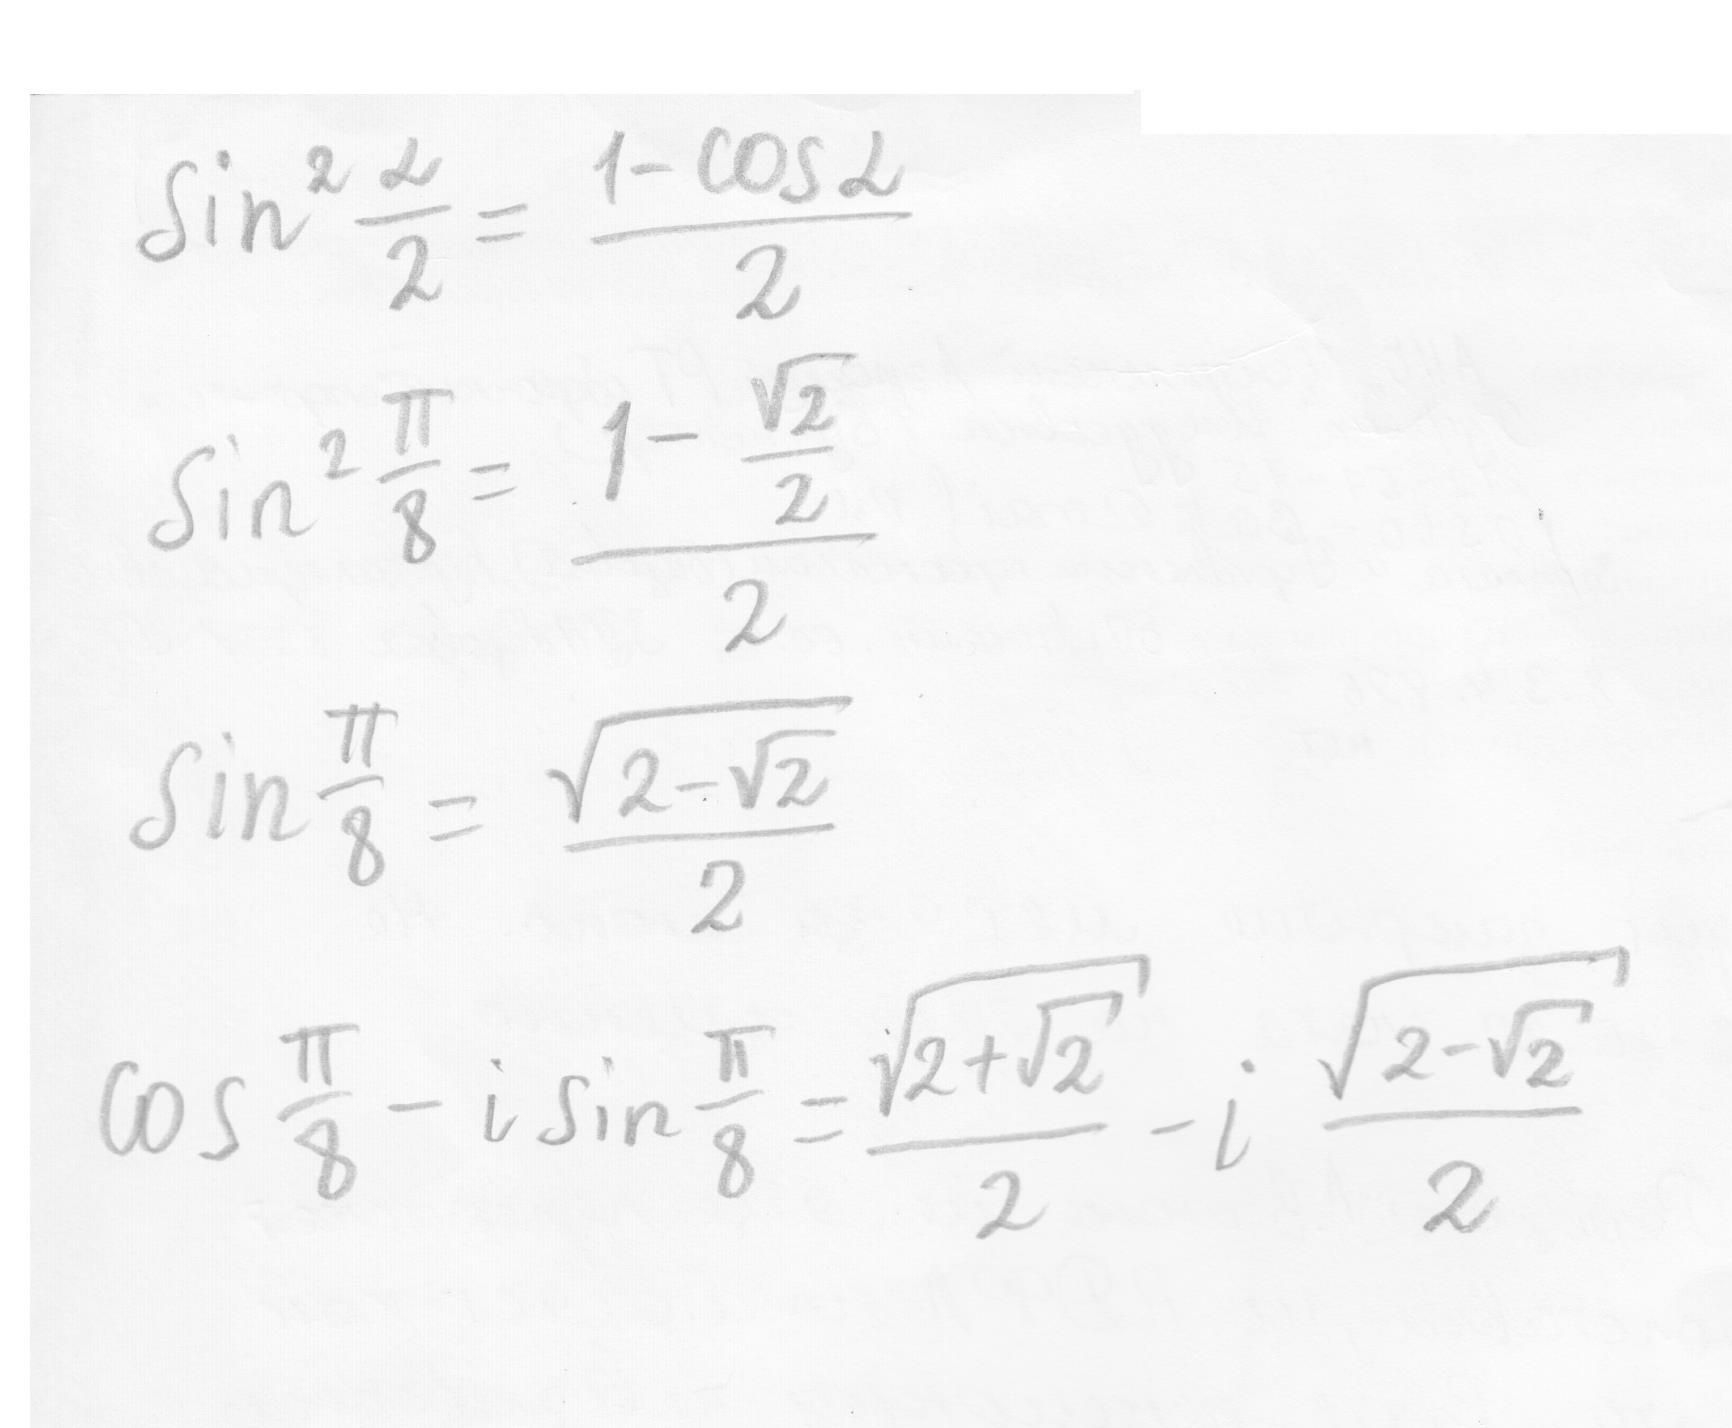 sin² α/2 = (1 - cos α)/2
sin² π/8 = (1 - √2/2)/2
sin π/8 = √(2 - √2)/2
cos π/8 - i sin π/8 = √(2 + √2)/2 - i √(2 - √2)/2